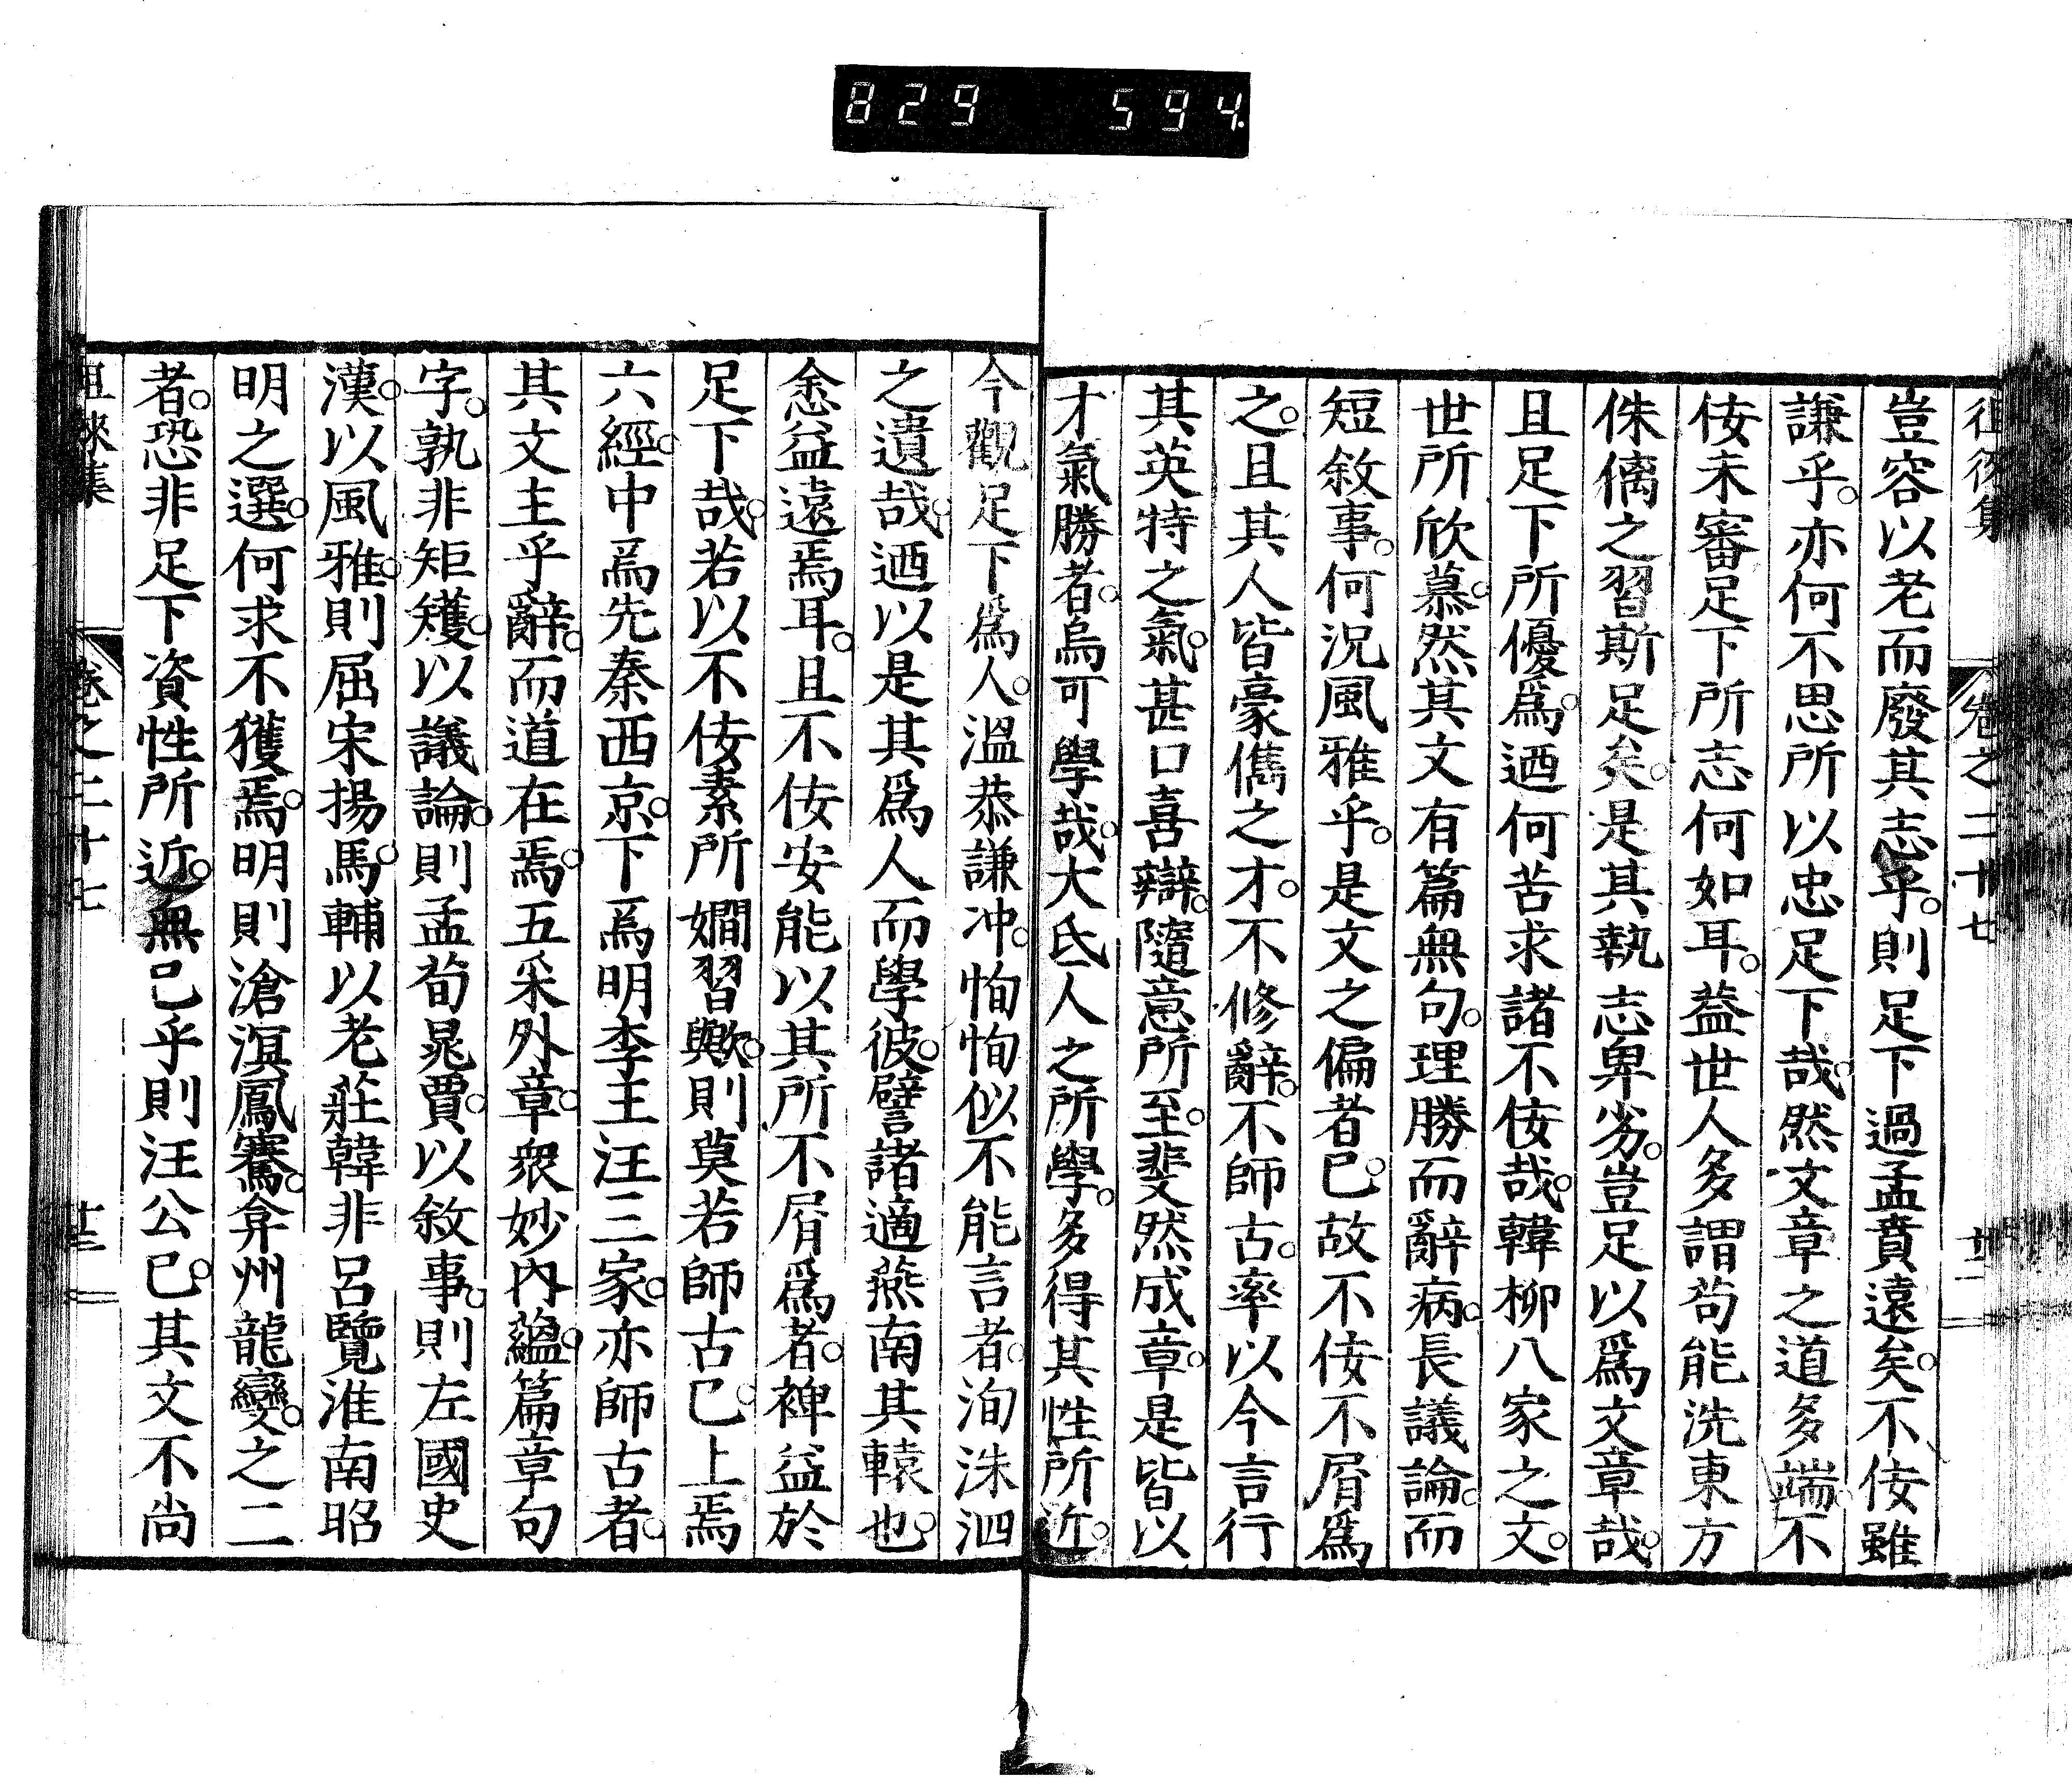 829 594
徂徠集 卷之二十七 廿二
豈容以老而廢其志乎。則足下過孟賁遠矣。不佞雖
謙乎。亦何不思所以忠足下哉。然文章之道多端。不
佞未審足下所志何如耳。葢世人多謂苟能洗東方
侏𠌯之習斯足矣。是其執志卑劣。豈足以爲文章哉。
且足下所優爲。迺何苦求諸不佞哉。韓柳八家之文。
世所欣慕。然其文有篇無句。理勝而辭病。長議論。而
短敘事。何況風雅乎。是文之偏者已。故不佞不屑爲
之。且其人皆豪儁之才。不修辭。不師古。率以今言行
其英特之氣。甚口喜辯。隨意所至。斐然成章。是皆以
才氣勝者。烏可學哉。大氐人之所學。多得其性所近。
今觀足下爲人。溫恭謙冲。恂恂似不能言者。洵洙泗
之遺哉。迺以是其爲人而學彼。譬諸適燕南其轅也。
悆益遠焉耳。且不佞安能以其所不屑爲者。裨益於
足下哉。若以不佞素所嫺習歟。則莫若師古已。上焉
六經。中焉先秦西京。下焉明李王汪三家。亦師古者。
其文主乎辭。而道在焉。五采外章。衆妙內蘊。篇章句
字。孰非矩矱。以議論。則孟荀晁賈。以敘事。則左國史
漢。以風雅。則屈宋揚馬。輔以老莊韓非呂覽淮南昭
明之選。何求不獲焉。明則滄溟鳳騫。弇州龍變。之二
者。恐非足下資性所近。無已乎則汪公已。其文不尚
徂徠集 卷之二十七 廿三